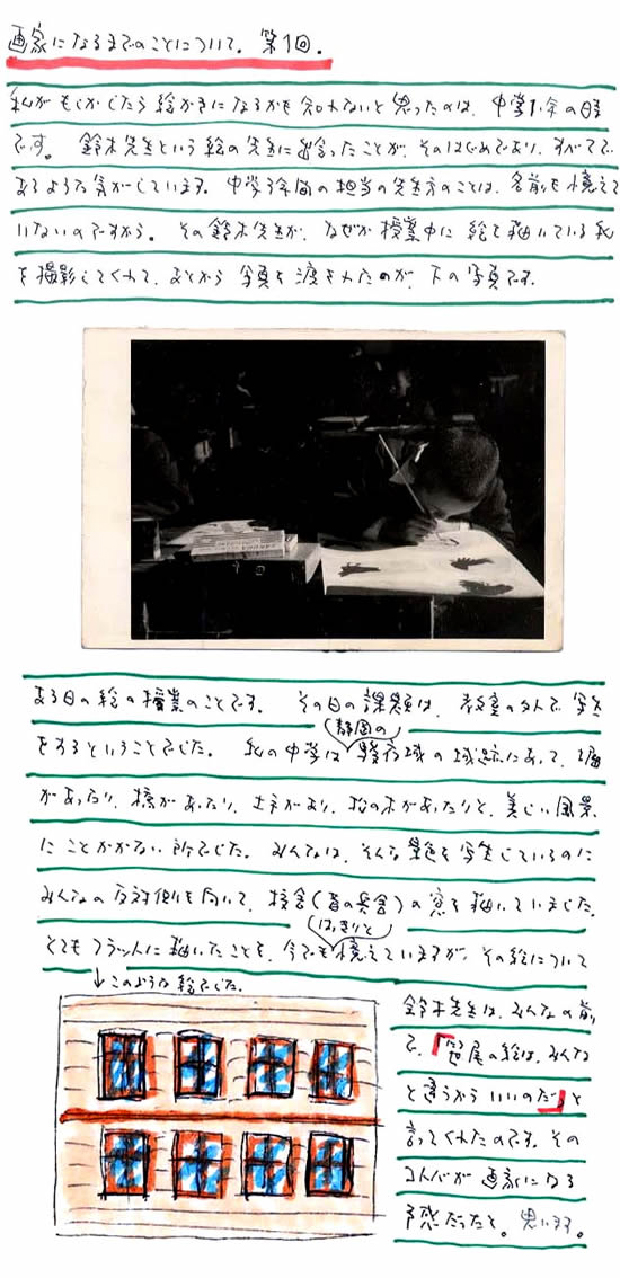 画家になるまでのことについて。第1回.
私がもしかしたら絵かきになるかも知れないと思ったのは、中学1年の時
です。鈴木先生という絵の先生に出会ったことが、そのはじめであり、すべてで
あるような気がしています。中学3年間の担当の先生方のことは、名前も憶えて
いないのですから。その鈴木先生が、なぜか授業中に絵を描いている私
を撮影してくれて、あとから写真を渡されたのが、下の写真です。
ある日の絵の授業のことです。その日の課題は、教室の外で写生
をするということでした。私の中学は(静岡の)駿府城の城跡にあって、堀
があったり、橋があったり、土手があり、松の木があったりと、美しい風景
にことかかない所でした。みんなは、そんな景色を写生しているのに
みんなの反対側を向いて、校舎(昔の兵舎)の窓を描いていました。
とてもフラットに描いたことを、今でも(はっきりと)憶えていますが、その絵について
↓このような絵でした。
鈴木先生は、みんなの前
で、「笹尾の絵は、みんな
と違うからいいのだ」と
言ってくれたのです。その
コトバが画家になる
予感だったと。思います。